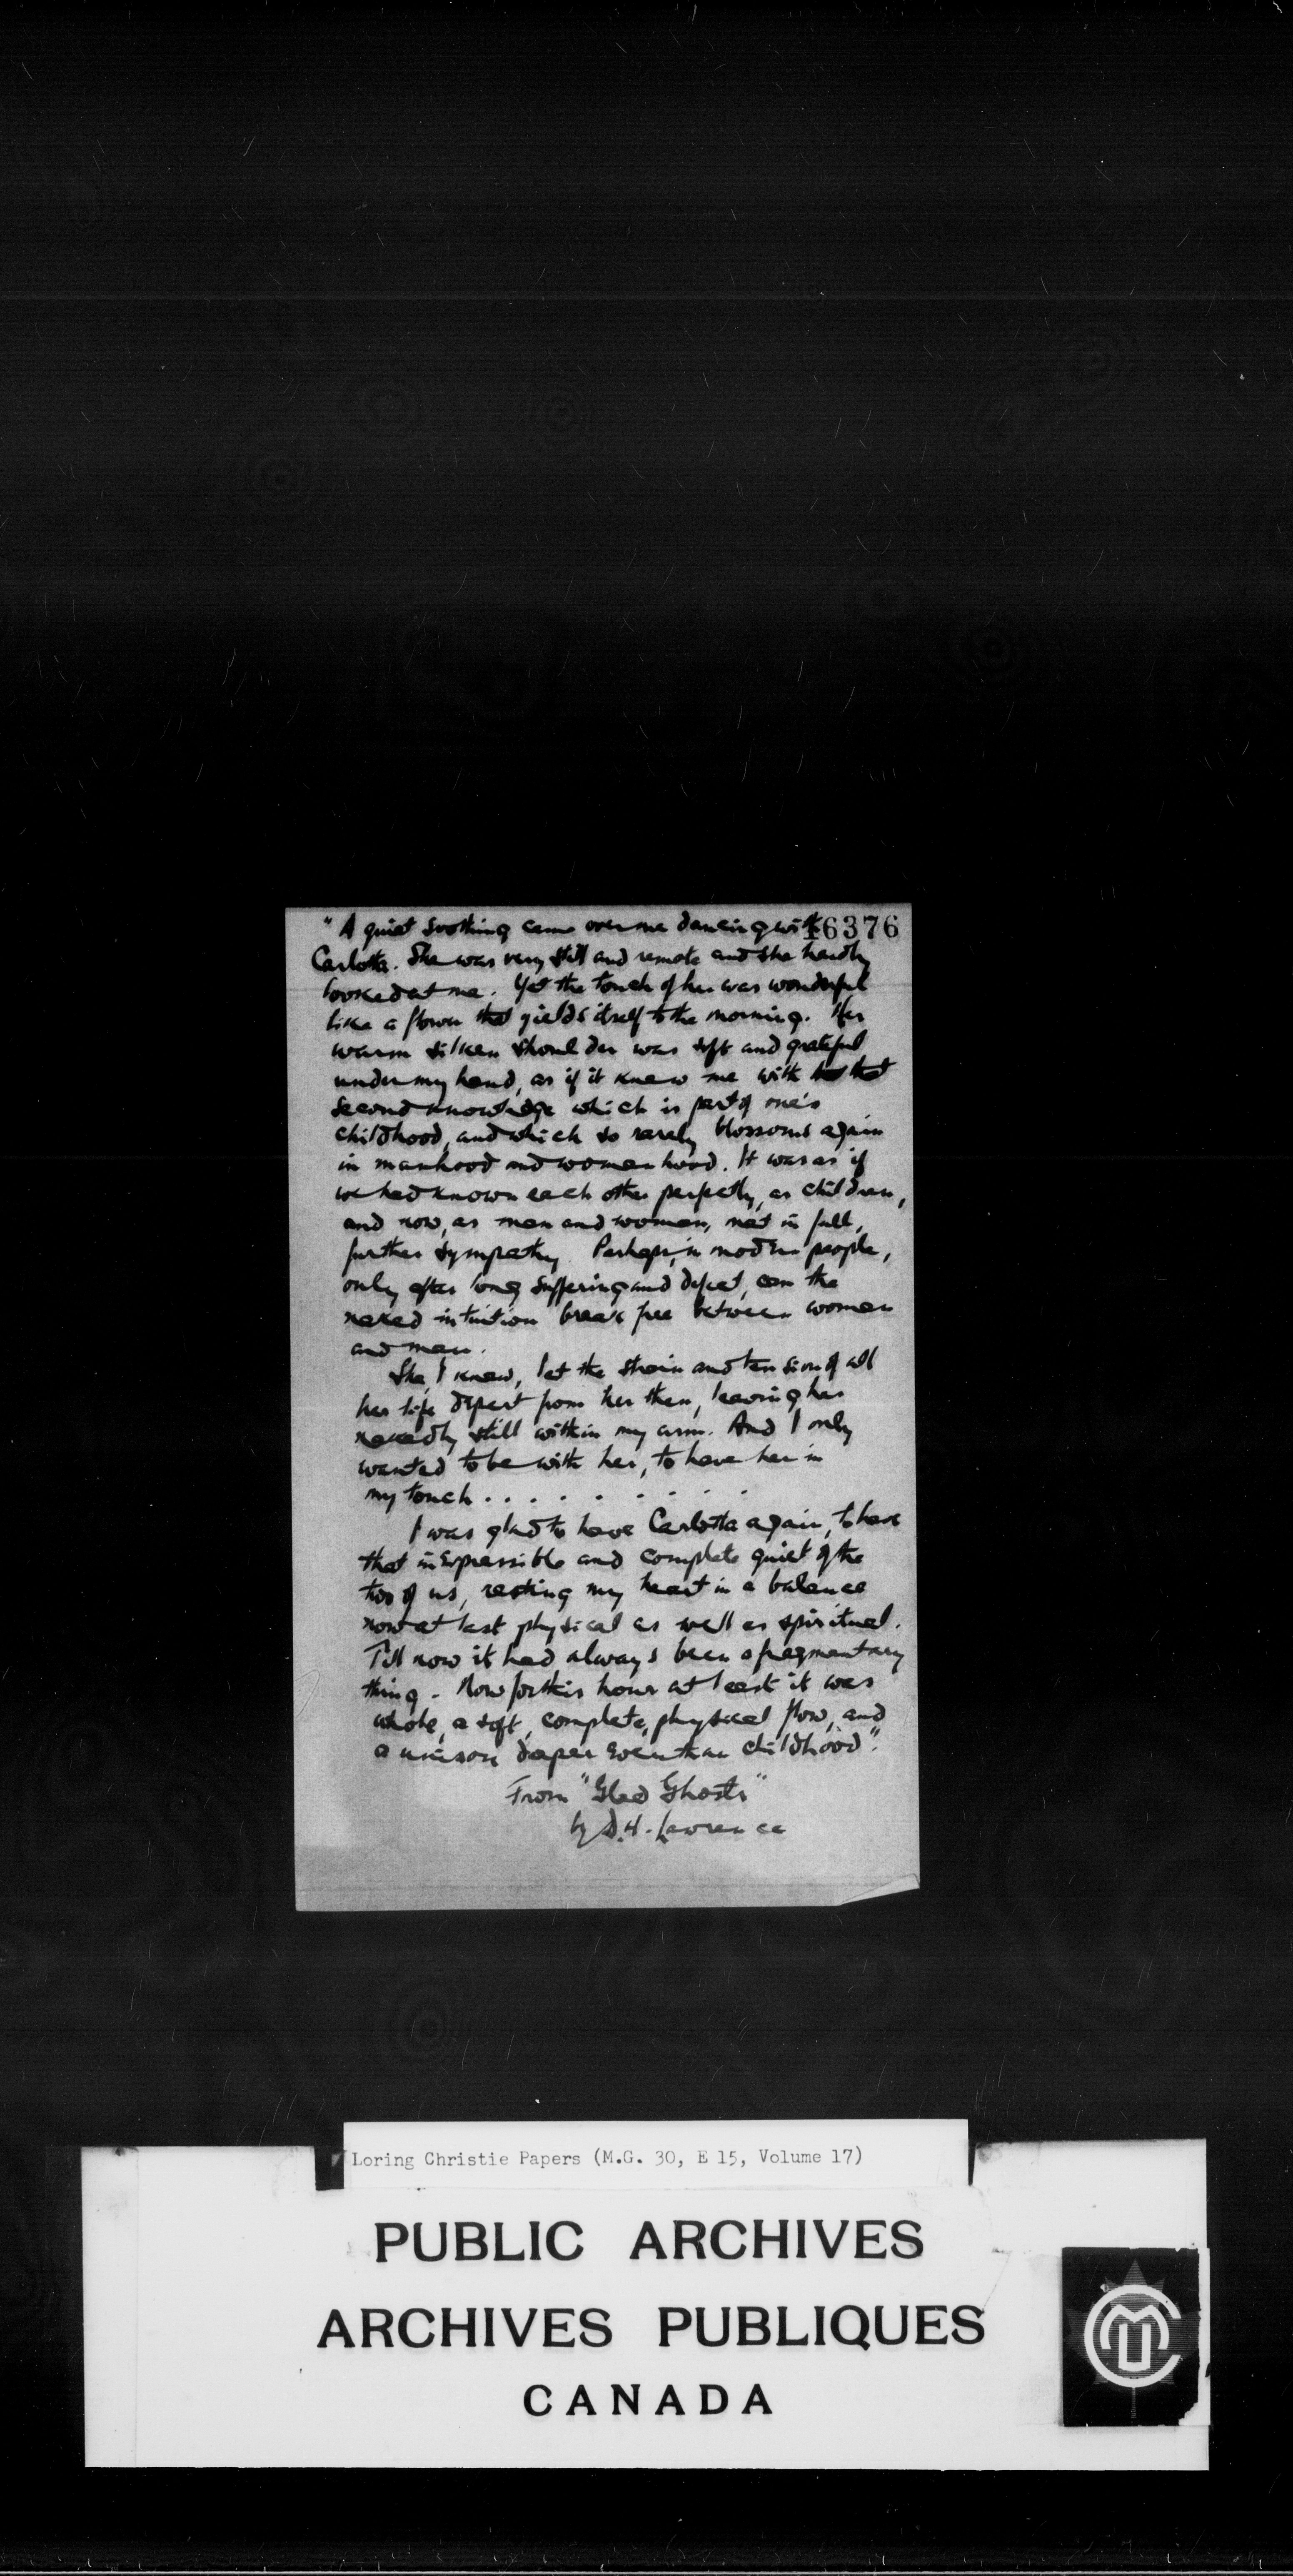 " A quiet soothing came over me dancing with
16376
Carlotta. She was very still and remote and she hardly
looked at me. Yet the touch of her was wonderful
like a flower that yields itself to the morning. Her
warm silken shoulder was soft and grateful
under my hand, as if it knew me with that
second knowledge which is part of one's
childhood, and which so rarely blossoms again
in manhood and womanhood. It was as if
we had known each other perfectly, as children,
and now, as man and woman, met in full,
further sympathy. Perhaps, in modern people,
only after long suffering and defeat, can the
naked intuition break free between woman
and man.
She, I knew, let the strain and tension of all
her life depart from her then, leaving her
nakedly still within my arm. And I only
wanted to be with her, to have her in
my touch . . . . . . . . .
I was glad to have Carlotta again, to have
that inexpressible and complete quiet of the
two of us, resting my heart in a balance
now at last physical as well as spiritual.
Till now it had always been a fragmentary
thing. Now for this hour at least it was
whole, a soft, complete, physical flow, and
a unison deeper even than childhood".
From "Glad Ghosts"
by D.H. Lawrence
Loring Christie Papers (M.G. 30, E 15, Volume 17)
PUBLIC ARCHIVES
ARCHIVES PUBLIQUES
CANADA